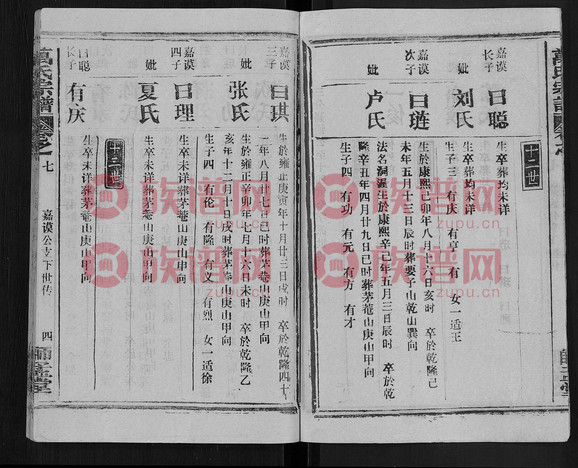 十二世
嘉谟长子 曰聪
生卒葬均未详
妣 刘氏
生子三 有庆 有亨 有 女一适王
嘉谟次子 曰琏
生於康熙己卯年八月十六日亥时 卒於乾隆己
未年五月十三日辰时葬要子山乾山巽向
妣 卢氏
法名洞渥生於康熙辛巳年五月三日辰时 卒於乾
隆辛丑年四月廿九日巳时葬茅菴山庚山甲向
生子四 有功 有元 有方 有才
嘉谟三子 曰琪
生於雍正庚寅年十月廿三日戌时 卒於乾隆四十
二年八月廿七日巳时葬茅菴山庚山甲向
妣 张氏
生於雍正辛卯年七月六日卯时 卒於乾隆乙
亥年十二月十日戌时葬茅菴山庚山甲向
生子四 有伦 有隆 有文 有烈 女一适徐
嘉谟四子 曰理
生卒未详葬茅菴山庚山甲向
妣 夏氏
生卒未详葬茅菴山庚山申向
十三世
曰聪长子 有庆
生卒未详葬茅菴山庚山甲向
萬氏宗譜
卷之
七
嘉谟公支下世传
四
族谱网
zupu.cn
族谱网
zupu.cn
族谱网
zupu.cn
族谱网
zupu.cn